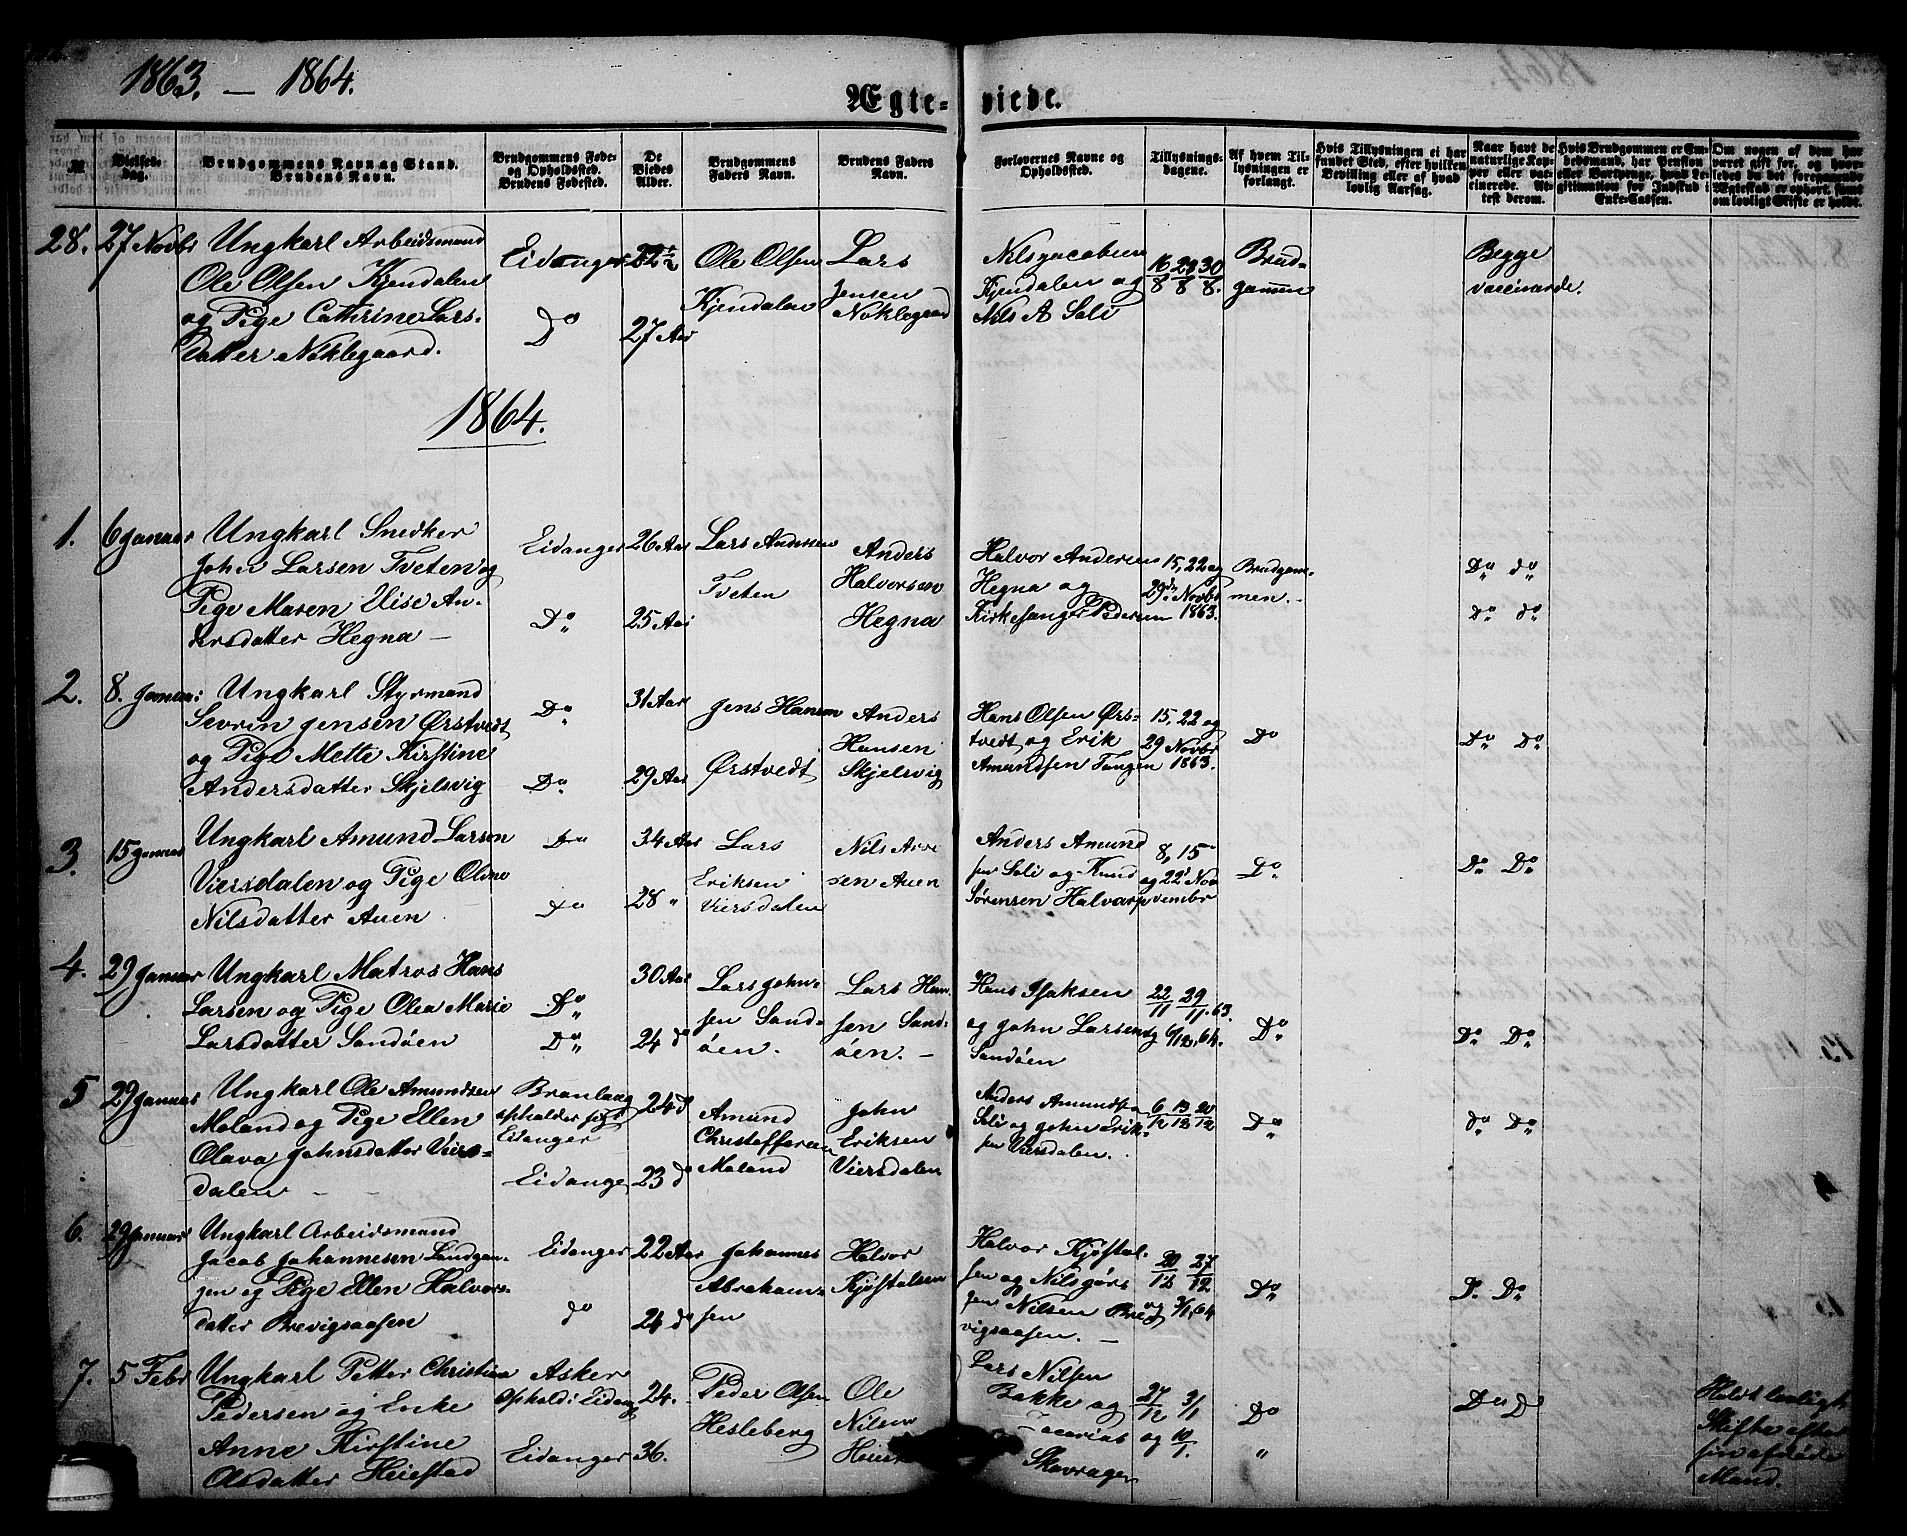 1863. — 1864.
Ægte-viede.
№
Vielses-
dag.
Brudgommens Navn og Stand.
Brudens Navn.
Brudgommens Føde-
og Opholdssted.
Brudens Fødested.
De
Viedes
Alder.
Brudgommens
Faders Navn.
Brudens Faders
Navn.
Forlovernes Navne og
Opholdssted.
Tillysnings-
dagene.
Af hvem Til-
lysningen er
forlangt.
Hvis Tillysningen ei har
fundet Sted, efter hvilken
Bevilling eller af hvad
lovlig Aarsag.
Naar havt de
naturlige Kop-
per eller vac-
cinerede. At-
test derom.
Hvis Brudgommen er Em-
bedsmand, har Pension
eller Vartpenge, hvad Le-
gitimation for Indskud i
Enke-Cassen.
Om nogen af dem har
været gift før, og hvor-
ledes da det foregaaende
Ægteskab er ophørt, samt
om lovligt Skifte er holdt.
28. 27 Novbr
Ungkarl Arbeidsmand
Ole Olsen Kjendalen
og Pige Cathrine Lars-
datter Nøklegaard.
Eidanger
Do
22½
27 Aar
Ole Olsen
Kjendalen
Lars
Jensen
Nøklegaard
Nils Jacobsen
Kjendalen og
Nils A Soli
16/8 23/8 30/8.
Brud-
gommen
Begge
vaccinerde.
1864.
1. 6 Januar
Ungkarl Snedker
John Larsen Tveten og
Pige Maren Elise An-
dersdatter Hegna —
Eidanger
Do
26 Aar
25 Aar
Lars Andersen
Tveten
Anders
Halvorsen
Hegna
Halvor Andersen
Hegna og
Kirkesanger Pedersen
15, 22 og
29de Novbr
1863.
Brudgom-
men. -
Do do
Do do
2. 8. Januar
Ungkarl Styrmand
Sevrin Jensen Ørstvedt
og Pige Mette Kirstine
Andersdatter Skjelsvig
Do
Do
31 Aar
29 Aar
Jens Hansen
Ørstvedt
Anders
Hansen
Skjelsvig
Hans Olsen Ørs-
tvedt og Erik
Amundsen Tangen
15, 22 og
29 Novbr
1863.
Do
Do Do
3. 15 Januar
Ungkarl Amund Larsen
Viersdalen og Pige Olene
Nilsdatter Auen
Do
Do
34 Aar
28 "
Lars
Eriksen
Viersdalen
Nils
sen Auen
Anders Amund
sen Soli og Knud
Sørensen Halvarp
8, 15
og 22 No
vembr
Do
Do Do
4. 29 Januar
Ungkarl Matros Hans
Larsen og Pige Olea Marie
Larsdatter Sandøen
Do
Do
30 Aar
24 d
Lars John-
sen Sand-
øen.
Lars Han-
sen Sand-
øen. —
Hans Isaksen
og John Larsen
Sandøen
22/11 29/11. 63.
og 6/12. 64.
Do
Do Do
5 29 Januar
Ungkarl Ole Amundsen
Moland og Pige Ellen
Olava Johnsdatter Viers-
dalen —
opholder sig i
Eidanger
Eidanger
24 d
23 d
Amund
Christoffersen
Moland
John
Eriksen
Viersdalen
Anders Amundsen
Soli og John Erik-
sen Viersdalen.
6/12 13/12 20/12
Do
do Do
6. 29 Januar
Ungkarl Arbeidsmand
Jacob Johannesen Sandgan-
gen og Pige Ellen Halvors-
datter Brevigsaasen
Eidanger
do
22 Aar
24 d
Johannes
Abraham-
sen
Halvor
Kjøstolsen
Halvor Kjøstol-
sen og Nils
sen Nilsen Bre-
vigsaasen. —
20/12 27/12
og 3/1. 64
Do
Do Do
7. 5 Febr
Ungkarl Petter Christian
Pedersen og Enke
Anne Kirstine
Olsdatter Heiestad
Asker
Ophold i Eidang
Eidanger
24.
36.
Peder Olsen
Hesleberg
Ole
Nilsen
Heiest
Lars Nilsen
Bakke og
Zacarias
Skavragen
27/12 3/1
og 10/1.
Do
"
Do Do
Holdt lovligt
Skifte efter
sin afdøde
Mand.